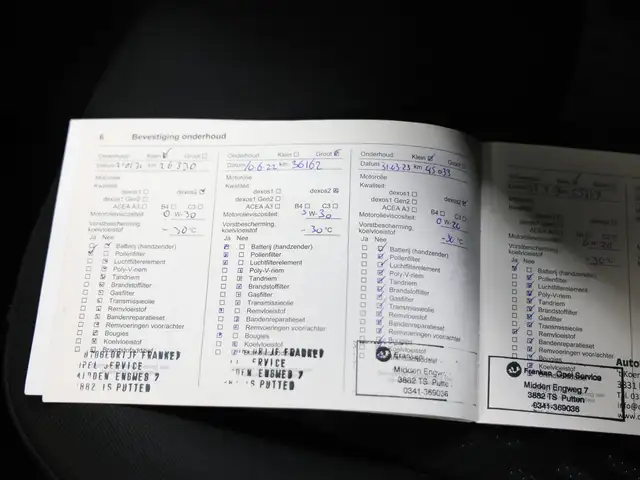 6 Bevestiging onderhoud
Onderhoud: Klein Groot
Datum km 26330
Motorolie
Kwaliteit
dexos1 dexos2
dexos1 Gen2
ACEA A3 B4 C3
Motorolieviscositeit 0 W-30
Vorstbescherming,
koelvloeistof -30°C
Ja Nee
Batterij (handzender)
Pollenfilter
Luchtfilterelement
Poly-V-riem
Tandriem
Brandstoffilter
Gasfilter
Transmissieolie
Remvloeistof
Bandenreparatieset
Remvoeringen voor/achter
Bougies
Koelvloeistof
FRANKEN
OPEL SERVICE
MIDDEN ENGWEG 7
3882 TS PUTTEN
Onderhoud: Klein Groot
Datum 10-6-22 km 36162
Motorolie
Kwaliteit
dexos1 dexos2
dexos1 Gen2
ACEA A3 B4 C3
Motorolieviscositeit W-30
Vorstbescherming,
koelvloeistof -30°C
Ja Nee
Batterij (handzender)
Pollenfilter
Luchtfilterelement
Poly-V-riem
Tandriem
Brandstoffilter
Gasfilter
Transmissieolie
Remvloeistof
Bandenreparatieset
Remvoeringen voor/achter
Bougies
Koelvloeistof
FRANKEN
SERVICE
ENGWEG 7
TS PUTTEN
Onderhoud: Klein Groot
Datum 31-03-23 km 45033
Motorolie
Kwaliteit
dexos1 dexos2
dexos1 Gen2
ACEA A3 B4 C3
Motorolieviscositeit 0W-20
Vorstbescherming,
koelvloeistof -36°C
Ja Nee
Batterij (handzender)
Pollenfilter
Luchtfilterelement
Poly-V-riem
Tandriem
Brandstoffilter
Gasfilter
Transmissieolie
Remvloeistof
Bandenreparatieset
Remvoeringen voor/achter
Bougies
Koelvloeistof
Franken
Midden Engw
3882 TS Putten
0341-369036
Kwaliteit
dexos1
dexos1 Gen2
ACEA A3
Motorolieviscositeit
Vorstbescherming,
koelvloeistof
Ja Nee
Batterij (handzender)
Pollenfilter
Luchtfilterelement
Poly-V-riem
Tandriem
Brandstoffilter
Gasfilter
Transmissieolie
Remvloeistof
Bandenreparatieset
Remvoeringen voor/achter
Bougies
Koelvloeistof
Franken Opel Service
Midden Engweg 7
3882 TS Putten
0341-369036
Auto